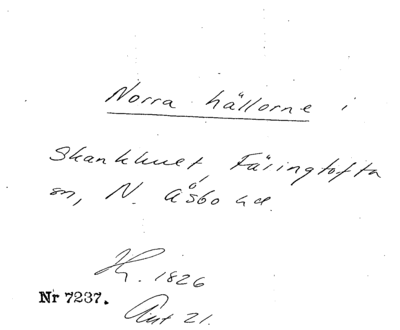 Norra hällorne i
Skankhult, Färingtofta
sn, N. Åsbo hd.
H. 1826
Nr 7237.
Ant 21.